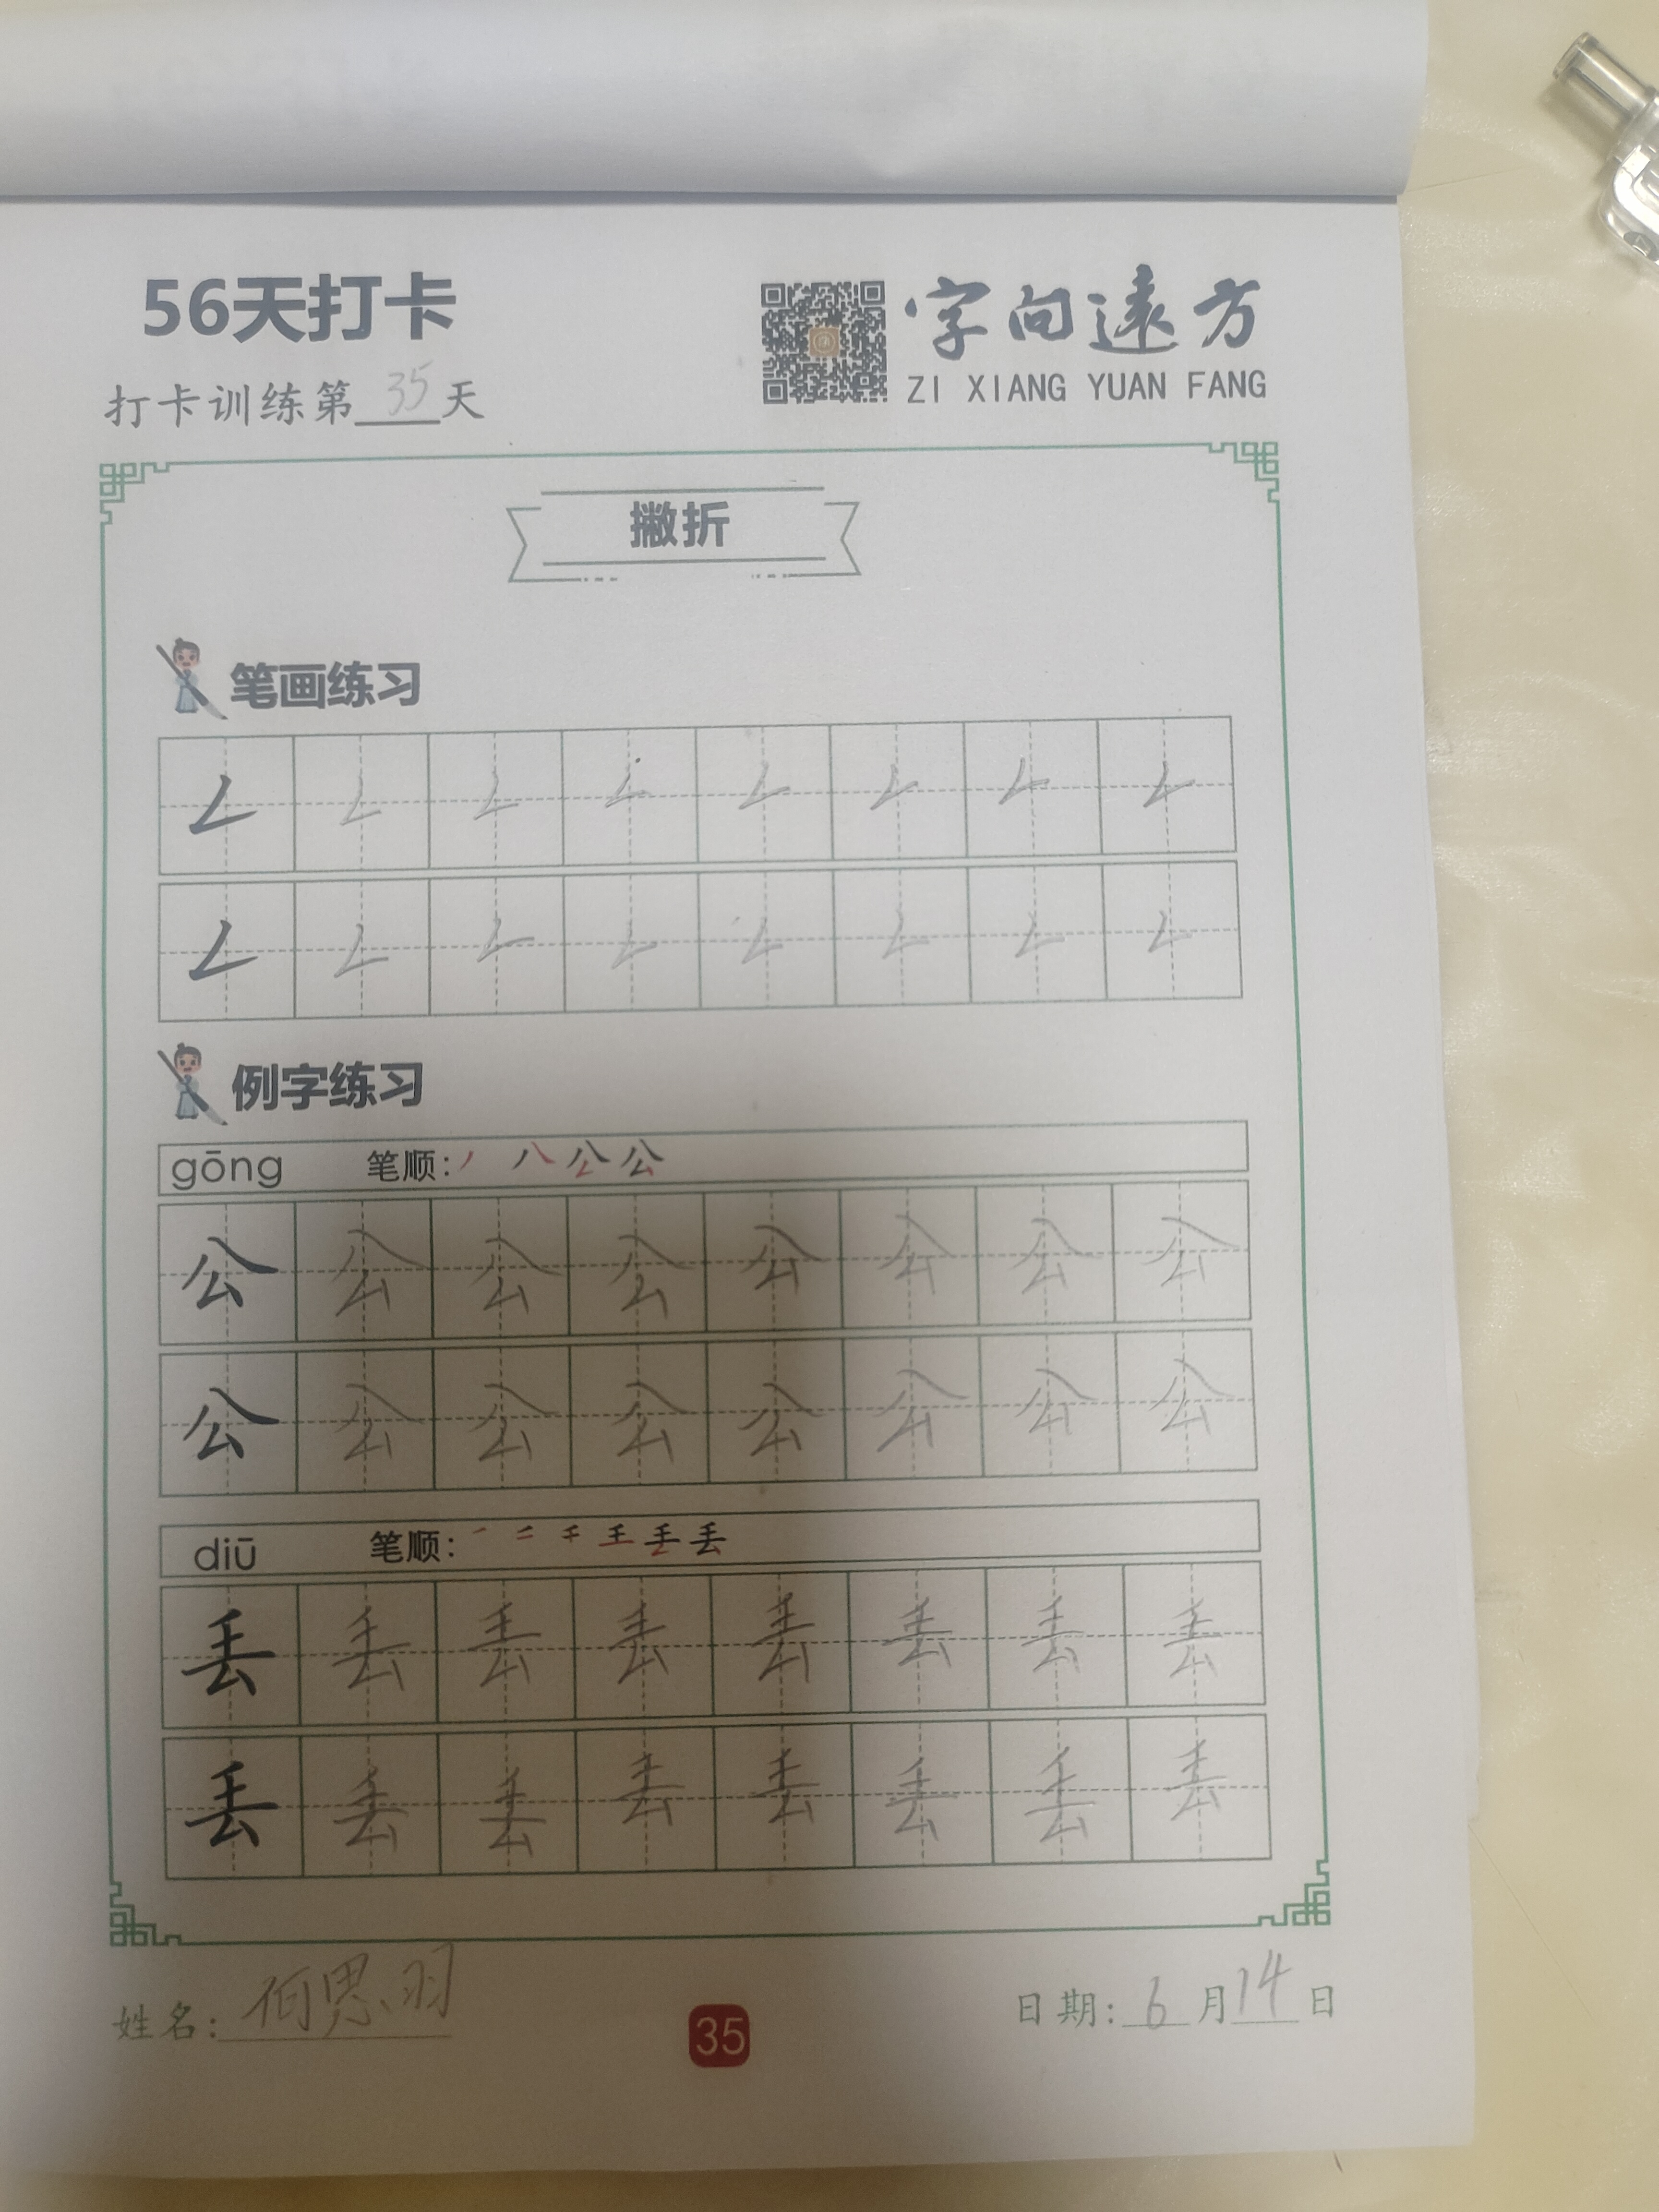 56天打卡
字向遠方
ZI XIANG YUAN FANG
打卡训练第35天
撇折
笔画练习
例字练习
gōng 笔顺: 丿 八 公 公
公 公 公 公 公 公 公 公
公 公 公 公 公 公 公 公
diū 笔顺: 丢 丢
丢 丢 丢 丢 丢 丢 丢 丢
丢 丢 丢 丢 丢 丢 丢 丢
姓名: 何思羽
35
日期: 6月14日